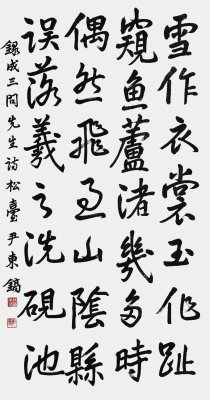 雪作衣裳玉作趾
窺魚蘆渚幾多時
偶然飛過山陰縣
誤落羲之洗硯池
錄成三問先生詩 松臺 尹東鎬